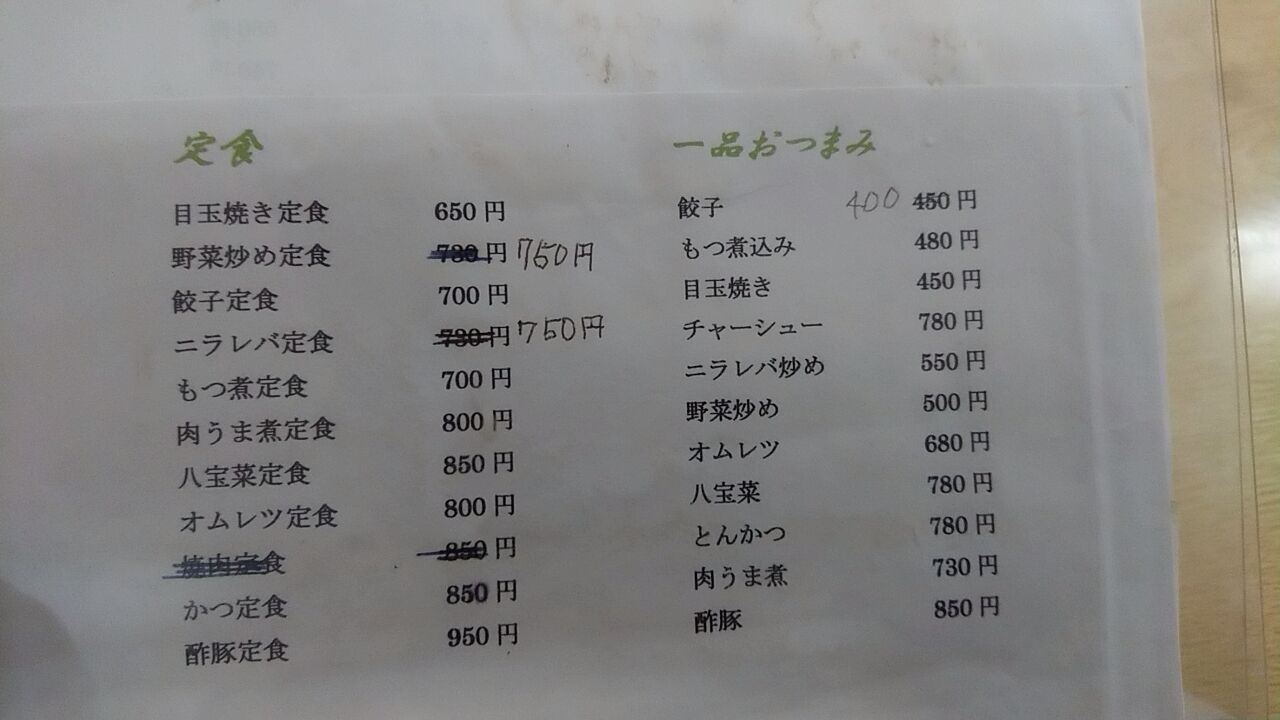 定食
目玉焼き定食 650円
野菜炒め定食 780円 750円
餃子定食 700円
ニラレバ定食 780円 750円
もつ煮定食 700円
肉うま煮定食 800円
八宝菜定食 850円
オムレツ定食 800円
焼肉定食 850円
かつ定食 850円
酢豚定食 950円
一品おつまみ
餃子 400 450円
もつ煮込み 480円
目玉焼き 450円
チャーシュー 780円
ニラレバ炒め 550円
野菜炒め 500円
オムレツ 680円
八宝菜 780円
とんかつ 780円
肉うま煮 730円
酢豚 850円